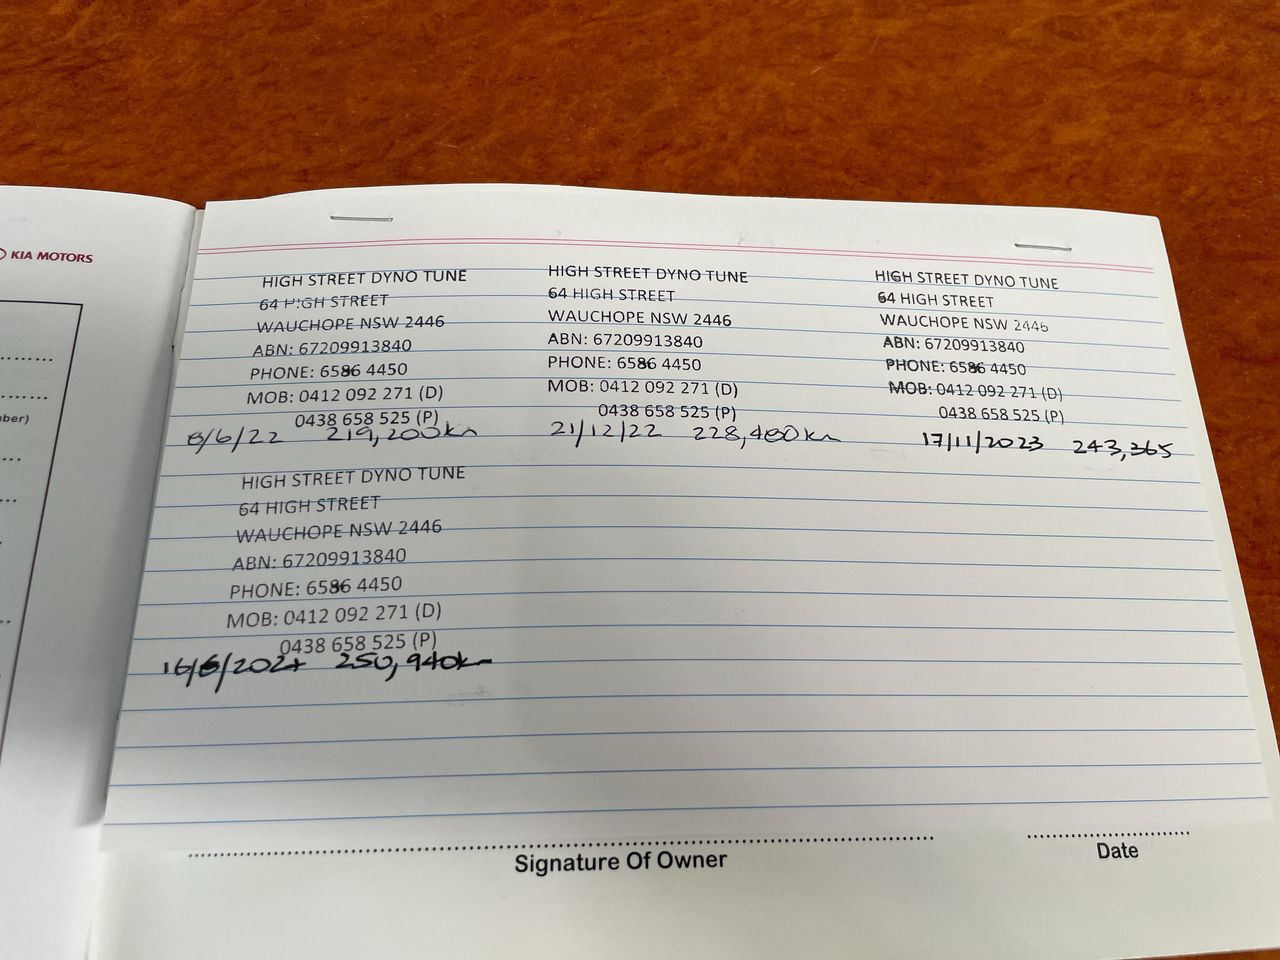 KIA MOTORS
ber)
HIGH STREET DYNO TUNE
64 HIGH STREET
WAUCHOPE NSW 2446
ABN: 67209913840
PHONE: 6586 4450
MOB: 0412 092 271 (D)
0438 658 525 (P)
8/6/22 219,200km
HIGH STREET DYNO TUNE
64 HIGH STREET
WAUCHOPE NSW 2446
ABN: 67209913840
PHONE: 6586 4450
MOB: 0412 092 271 (D)
0438 658 525 (P)
21/12/22 228,480km
HIGH STREET DYNO TUNE
64 HIGH STREET
WAUCHOPE NSW 2446
ABN: 67209913840
PHONE: 6586 4450
MOB: 0412 092 271 (D)
0438 658 525 (P)
17/11/2023 243,365
HIGH STREET DYNO TUNE
64 HIGH STREET
WAUCHOPE NSW 2446
ABN: 67209913840
PHONE: 6586 4450
MOB: 0412 092 271 (D)
0438 658 525 (P)
16/6/2024 250,940km
Signature Of Owner
Date